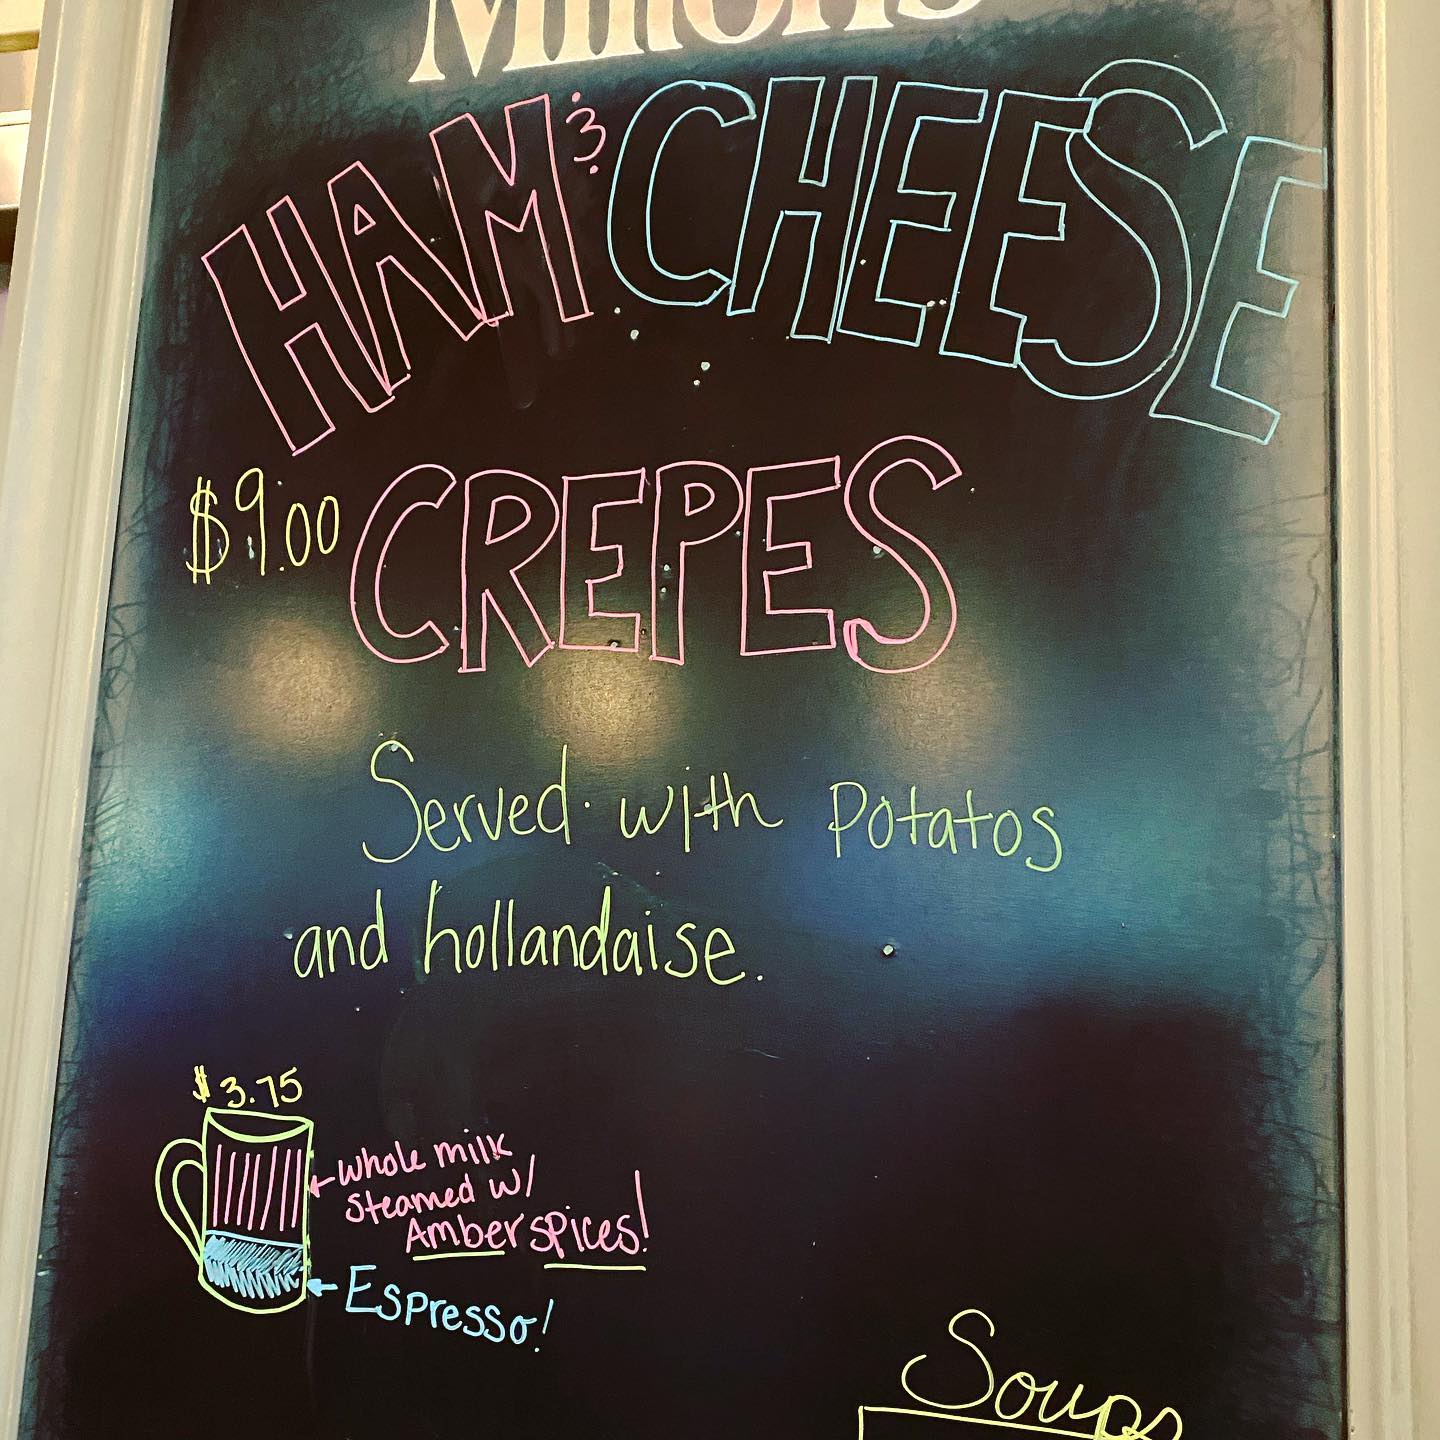 HAM & CHEESE
$9.00 CREPES
Served with potatos
and hollandaise.
$3.75
whole milk
steamed w/
Amber spices!
Espresso!
Soups